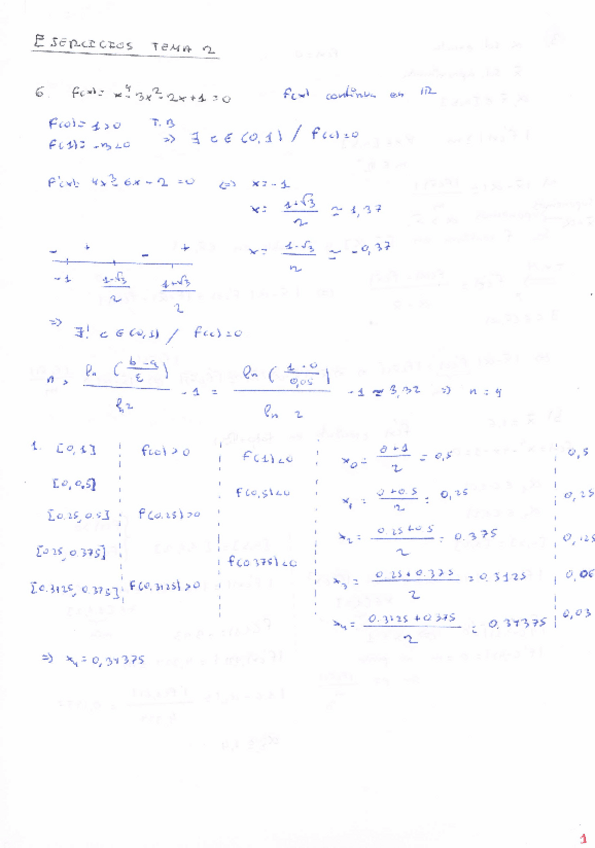 EJERCICIOS TEMA 2
6. f(x)= x⁴-3x²-2x+1=0 f(x) continua en ℝ
f(0)=1>0 T.B
f(1)=-3<0 => ∃ c ∈ (0,1) / f(c)=0
f'(x)= 4x³-6x-2=0 <=> x=-1
x= (1+√3)/2 ≃ 1,37
x= (1-√3)/2 ≃ -0,37
- + - +
-1 (1-√3)/2 (1+√3)/2
=> ∃! c ∈ (0,1) / f(c)=0
n > ln((b-a)/ε)/ln2 -1 = ln((1-0)/0,05)/ln 2 -1 ≃ 3,32 => n=4
1. [0,1] f(0)>0 f(1)<0 x₀= (0+1)/2 = 0,5 0,5
[0,0,5] f(0,5)<0 x₁= (0+0.5)/2 = 0,25 0,25
[0.25,0.5] f(0.25)>0 x₂= (0.25+0.5)/2 = 0.375 0,125
[0.25,0.375] f(0.375)<0 x₃= (0.25+0.375)/2 = 0.3125 0,06
[0.3125,0.375] f(0.3125)>0 x₄= (0.3125+0.375)/2 = 0.34375 0,03
=> x₄=0,34375
1